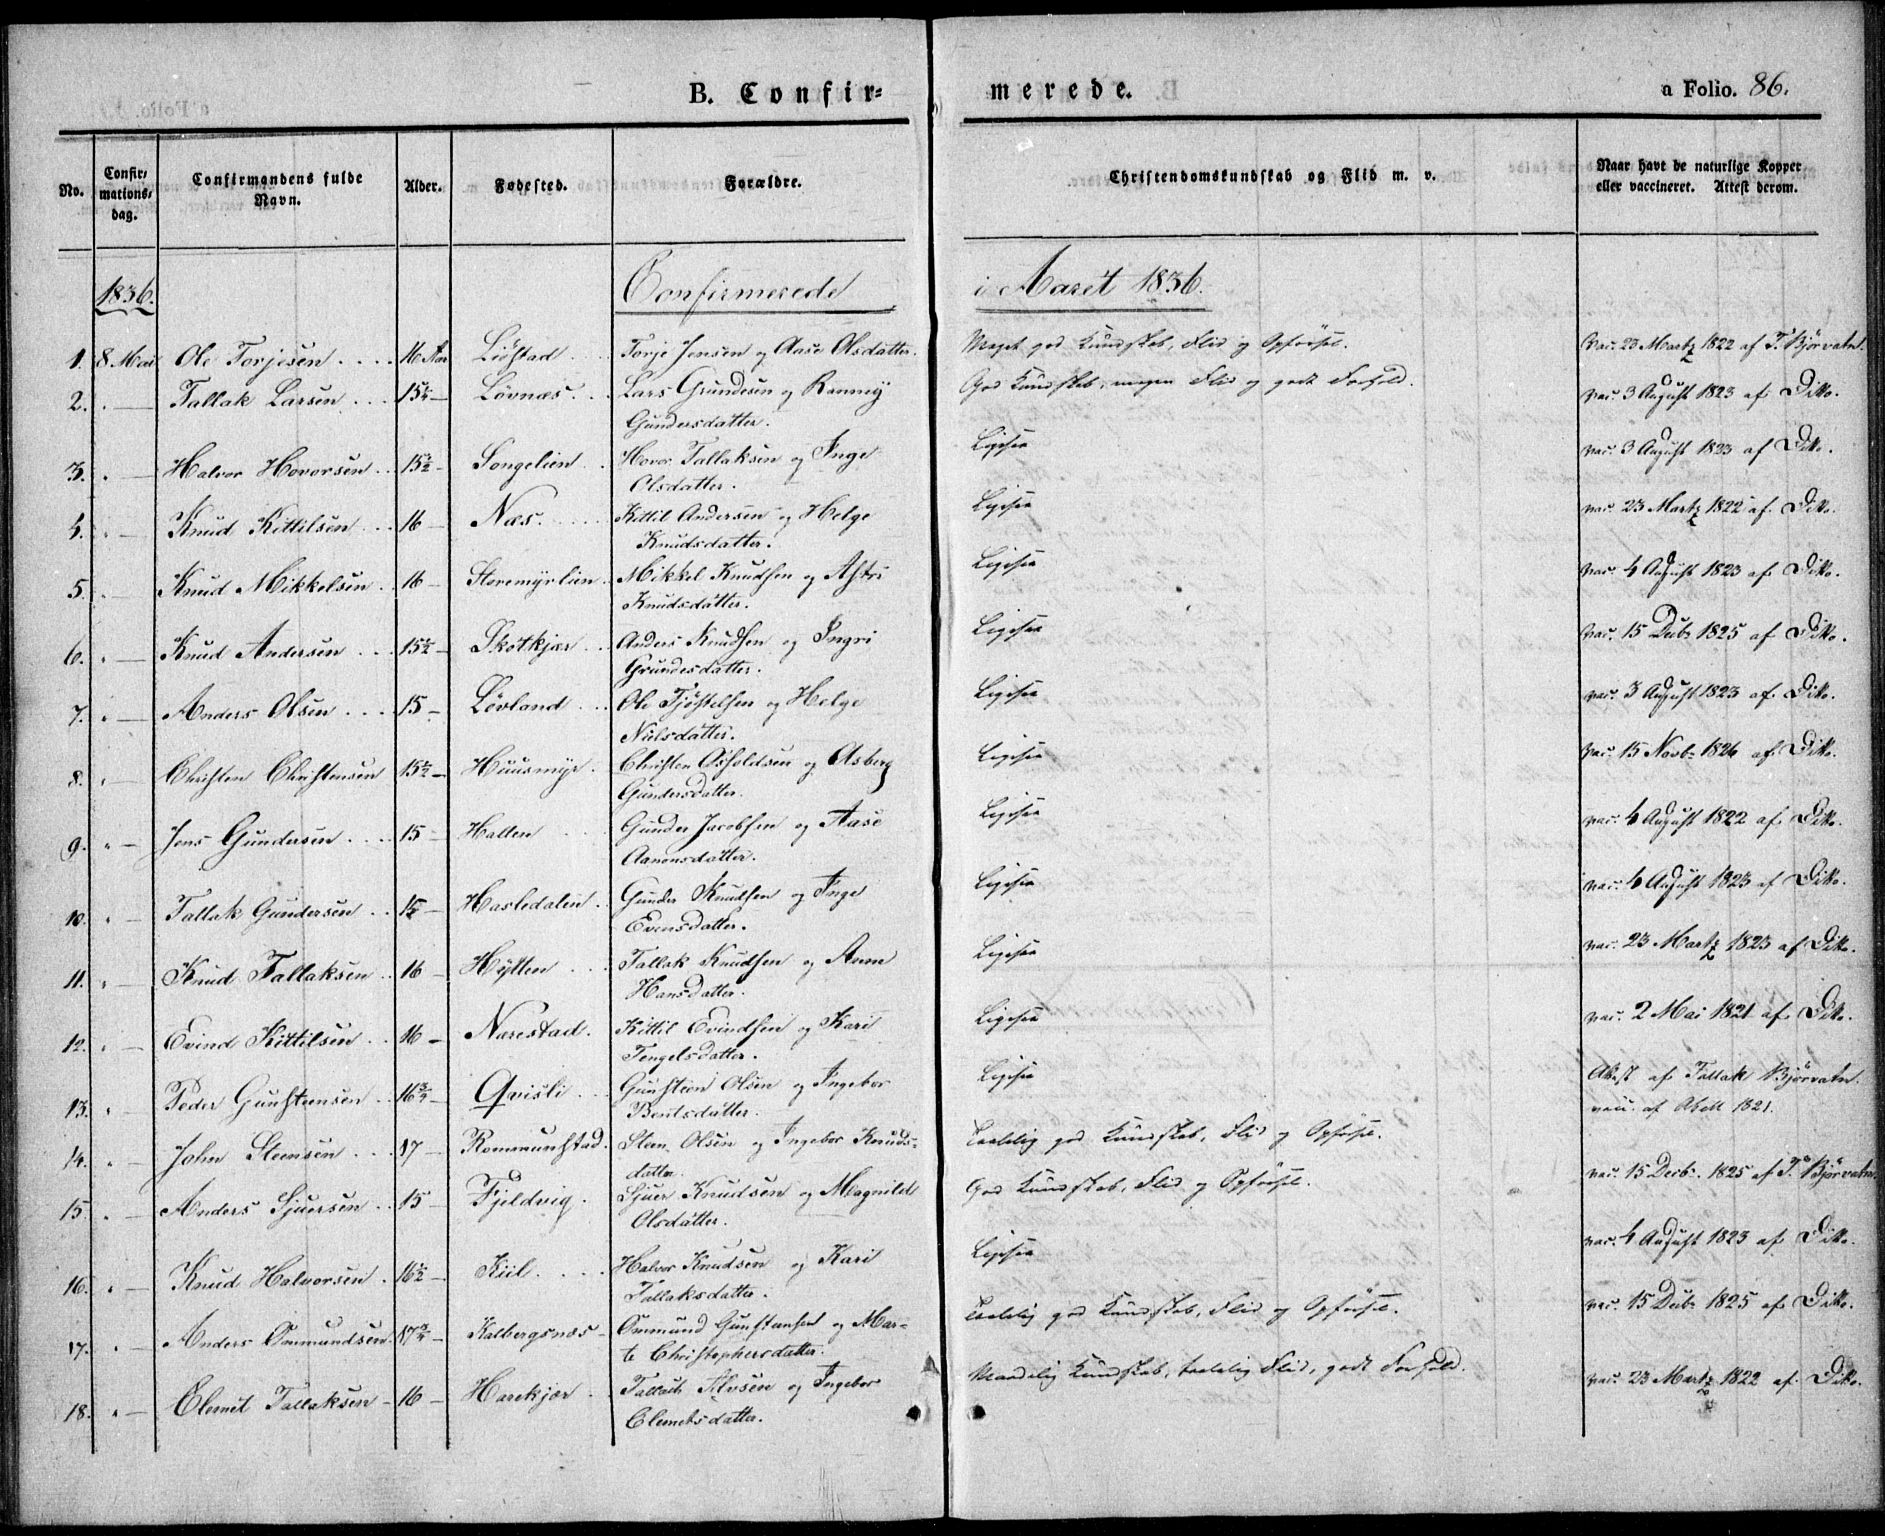 B. Confir-
merede.
a Folio. 86.
No. Confir-mations-dag. Confirmandens fulde Navn. Alder. Fødested. Forældre. Christendomskundskab og Flid m. v. Naar havt de naturlige Kopper eller vaccineret. Attest derom.
1836. Confirmerede i Aaret 1836.
1. 8 Mai Ole Torjesen 16 Aar Liøstad Torje Jensen og Aase Olsdatter. Meget god Kundskab, Flid og Opførsel. vac. 23 Martz 1822 af T. Bjørvatn.
2. Tallak Larsen 15¼ Løvnæs Lars Grundesen og Ranneÿ God Kundskab, megen Flid og godt Forhold. vac. 3 August 1823 af Ditto.
Gundersdatter.
3. Halvor Hovorsen 15½ Songelien Hovor Tallaksen og Inge Ligesaa vac. 3 August 1823 af Ditto.
Olsdatter.
4. Knud Kittilsen 16 Næs. Kittil Andersen og Helge Ligesaa vac. 23 Martz 1822 af Ditto.
Knudsdatter.
5. Knud Mikkelsen 16 Storemyrlien Mikkel Knudsen og Astri Ligesaa vac. 4 August 1823 af Ditto.
Knudsdatter.
6. Knud Andersen 15½ Skotkjær Anders Knudsen og Ingri Ligesaa vac. 15 Decb. 1825 af Ditto.
Grundesdatter.
7. Anders Olsen 15 Løvland Ole Tjøstelsen og Helge Ligesaa vac. 3 August 1823 af Ditto.
Nielsdatter.
8. Christen Christensen 15½ Huusmyr Christen Osholdsen og Asberg Ligesaa vac. 15 Novb. 1826 af Ditto.
Gundersdatter.
9. Jens Gundersen 15 Hallen Gunder Jacobsen og Aase Ligesaa vac. 4 August 1822 af Ditto.
Aanonsdatter.
10. Tallak Gundersen 15 Hasledalen Gunder Knudsen og Inge Ligesaa vac. 4 August 1823 af Ditto.
Evensdatter.
11. Knud Tallaksen 16 Hÿtten Tallak Knudsen og Anne Ligesaa vac. 23 Martz 1823 af Ditto.
Hansdatter.
12. Evind Kittilsen 16 Narestad. Kittil Evindsen og Kari Ligesaa vac. 2 Mai 1821 af Ditto.
Tengelsdatter.
13. Peder Gunsteensen 16¾ Qvisli Gunsteen Olsen og Ingebor Ligesaa Attest af Tallak Bjørvatn.
Bentsdatter. vacc. af Abell 1821.
14. John Steensen 17 Rommundstad. Steen Olsen og Ingebor Knuds- Taalelig god Kundskab, Flid og Opførsel.
datter. vac. 15 Decb. 1825 af T. Bjørvatn
15. Anders Sjuersen 15 Fjeldvig. Sjuer Knudsen og Magnild God Kundskab, Flid og Opførsel.
Olsdatter. vac. 4 August 1823 af Ditto.
16. Knud Halvorsen 16½ Kiil Halvor Knudsen og Kari Ligesaa
Tallaksdatter. vac. 15 Decb. 1825 af Ditto.
17. Anders Ommundsen 17¾ Kalbergsnæs Ommund Gunstensen og Mar- Taalelig god Kundskab, Flid og Opførsel.
te Christophersdatter.
18. Clemet Tallaksen 16 Harekjær Tallak Alvsen og Ingebor Maadelig Kundskab, taalelig Flid, godt Forhold. vac. 23 Martz 1822 af Ditto.
Clemetsdatter.